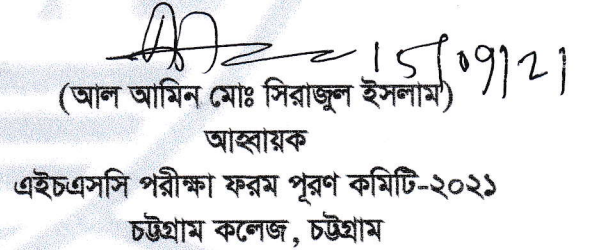 15/09/21
(আল আমিন মোঃ সিরাজুল ইসলাম)
আহ্বায়ক
এইচএসসি পরীক্ষা ফরম পূরণ কমিটি-২০২১
চট্টগ্রাম কলেজ, চট্টগ্রাম